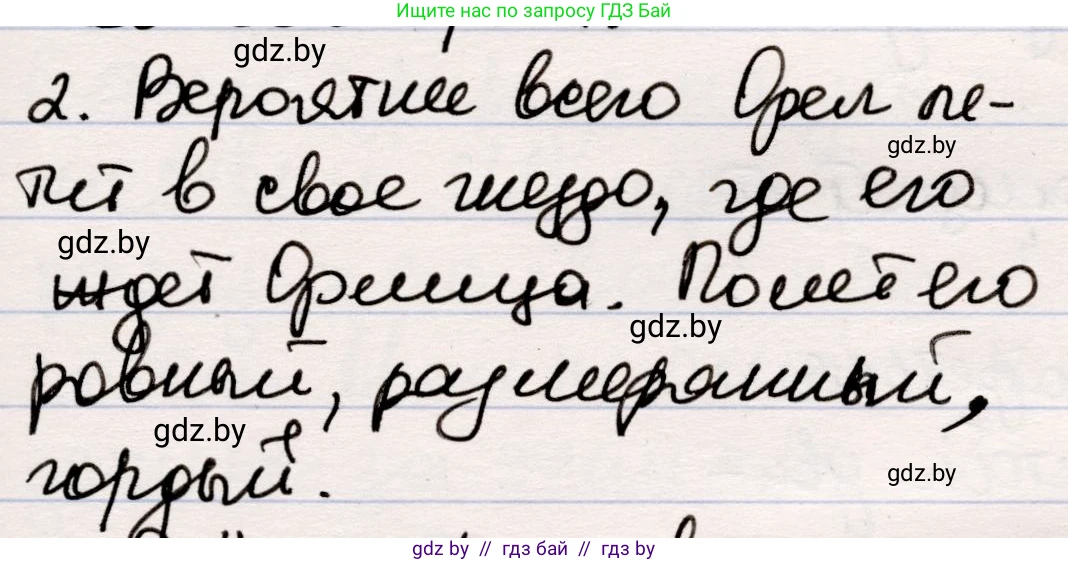 Ищите нас по запросу ГДЗ Бай
gdz.by
2. Вероятнее всего Орел ле-
gdz.by
тит в свое гнездо, где его
gdz.by
ждет Орлица. Полет его
gdz.by
ровный, размеранный,
gdz.by
гордый.
gdz.by
gdz by // гдз бай // гдз by